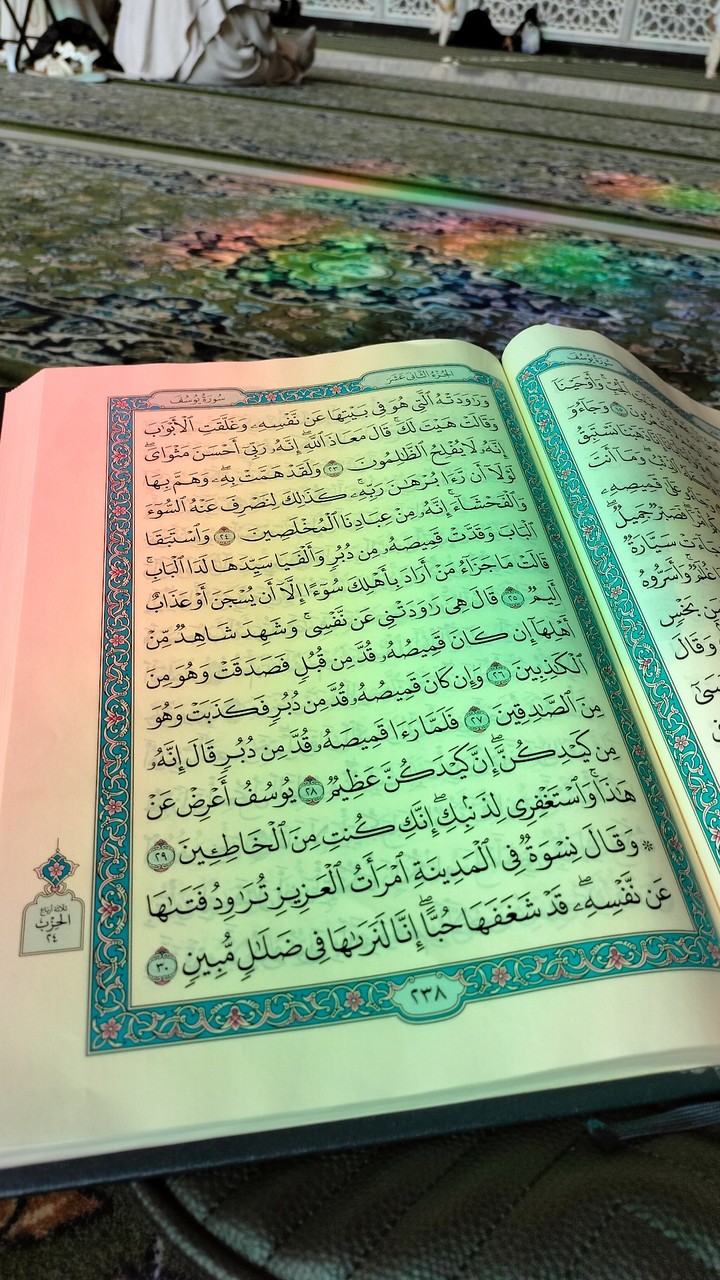 سُورَةُ يُوسُفَ
ٱلْجُبِّ وَأَوْحَيْنَآ
وَجَآءُو
ذَهَبْنَا نَسْتَبِقُ
وَمَآ أَنتَ
عَلَىٰ قَمِيصِهِۦ
فَصَبْرٌ جَمِيلٌ
سَيَّارَةٌ
وَأَسَرُّوهُ
بَخْسٍ
وَقَالَ
الجُزْءُ الثَّانِي عَشَرَ
سُورَةُ يُوسُفَ
وَرَٰوَدَتْهُ ٱلَّتِى هُوَ فِى بَيْتِهَا عَن نَّفْسِهِۦ وَغَلَّقَتِ ٱلْأَبْوَٰبَ
وَقَالَتْ هَيْتَ لَكَ ۚ قَالَ مَعَاذَ ٱللَّهِ ۖ إِنَّهُۥ رَبِّىٓ أَحْسَنَ مَثْوَاىَ ۖ
إِنَّهُۥ لَا يُفْلِحُ ٱلظَّٰلِمُونَ ٢٣ وَلَقَدْ هَمَّتْ بِهِۦ ۖ وَهَمَّ بِهَا
لَوْلَآ أَن رَّءَا بُرْهَٰنَ رَبِّهِۦ ۚ كَذَٰلِكَ لِنَصْرِفَ عَنْهُ ٱلسُّوٓءَ
وَٱلْفَحْشَآءَ ۚ إِنَّهُۥ مِنْ عِبَادِنَا ٱلْمُخْلَصِينَ ٢٤ وَٱسْتَبَقَا
ٱلْبَابَ وَقَدَّتْ قَمِيصَهُۥ مِن دُبُرٍ وَأَلْفَيَا سَيِّدَهَا لَدَا ٱلْبَابِ ۚ
قَالَتْ مَا جَزَآءُ مَنْ أَرَادَ بِأَهْلِكَ سُوٓءًا إِلَّآ أَن يُسْجَنَ أَوْ عَذَابٌ
أَلِيمٌ ٢٥ قَالَ هِىَ رَٰوَدَتْنِى عَن نَّفْسِى ۚ وَشَهِدَ شَاهِدٌ مِّنْ
أَهْلِهَآ إِن كَانَ قَمِيصُهُۥ قُدَّ مِن قُبُلٍ فَصَدَقَتْ وَهُوَ مِنَ
ٱلْكَٰذِبِينَ ٢٦ وَإِن كَانَ قَمِيصُهُۥ قُدَّ مِن دُبُرٍ فَكَذَبَتْ وَهُوَ
مِنَ ٱلصَّٰدِقِينَ ٢٧ فَلَمَّا رَءَا قَمِيصَهُۥ قُدَّ مِن دُبُرٍ قَالَ إِنَّهُۥ
مِن كَيْدِكُنَّ ۖ إِنَّ كَيْدَكُنَّ عَظِيمٌ ٢٨ يُوسُفُ أَعْرِضْ عَنْ
هَٰذَا ۚ وَٱسْتَغْفِرِى لِذَنۢبِكِ ۖ إِنَّكِ كُنتِ مِنَ ٱلْخَاطِـِٔينَ ٢٩
۞ وَقَالَ نِسْوَةٌ فِى ٱلْمَدِينَةِ ٱمْرَأَتُ ٱلْعَزِيزِ تُرَٰوِدُ فَتَىٰهَا
عَن نَّفْسِهِۦ ۖ قَدْ شَغَفَهَا حُبًّا ۖ إِنَّا لَنَرَىٰهَا فِى ضَلَٰلٍ مُّبِينٍ ٣٠
ثلاثة أرباع
الحزب
٢٤
٢٣٨